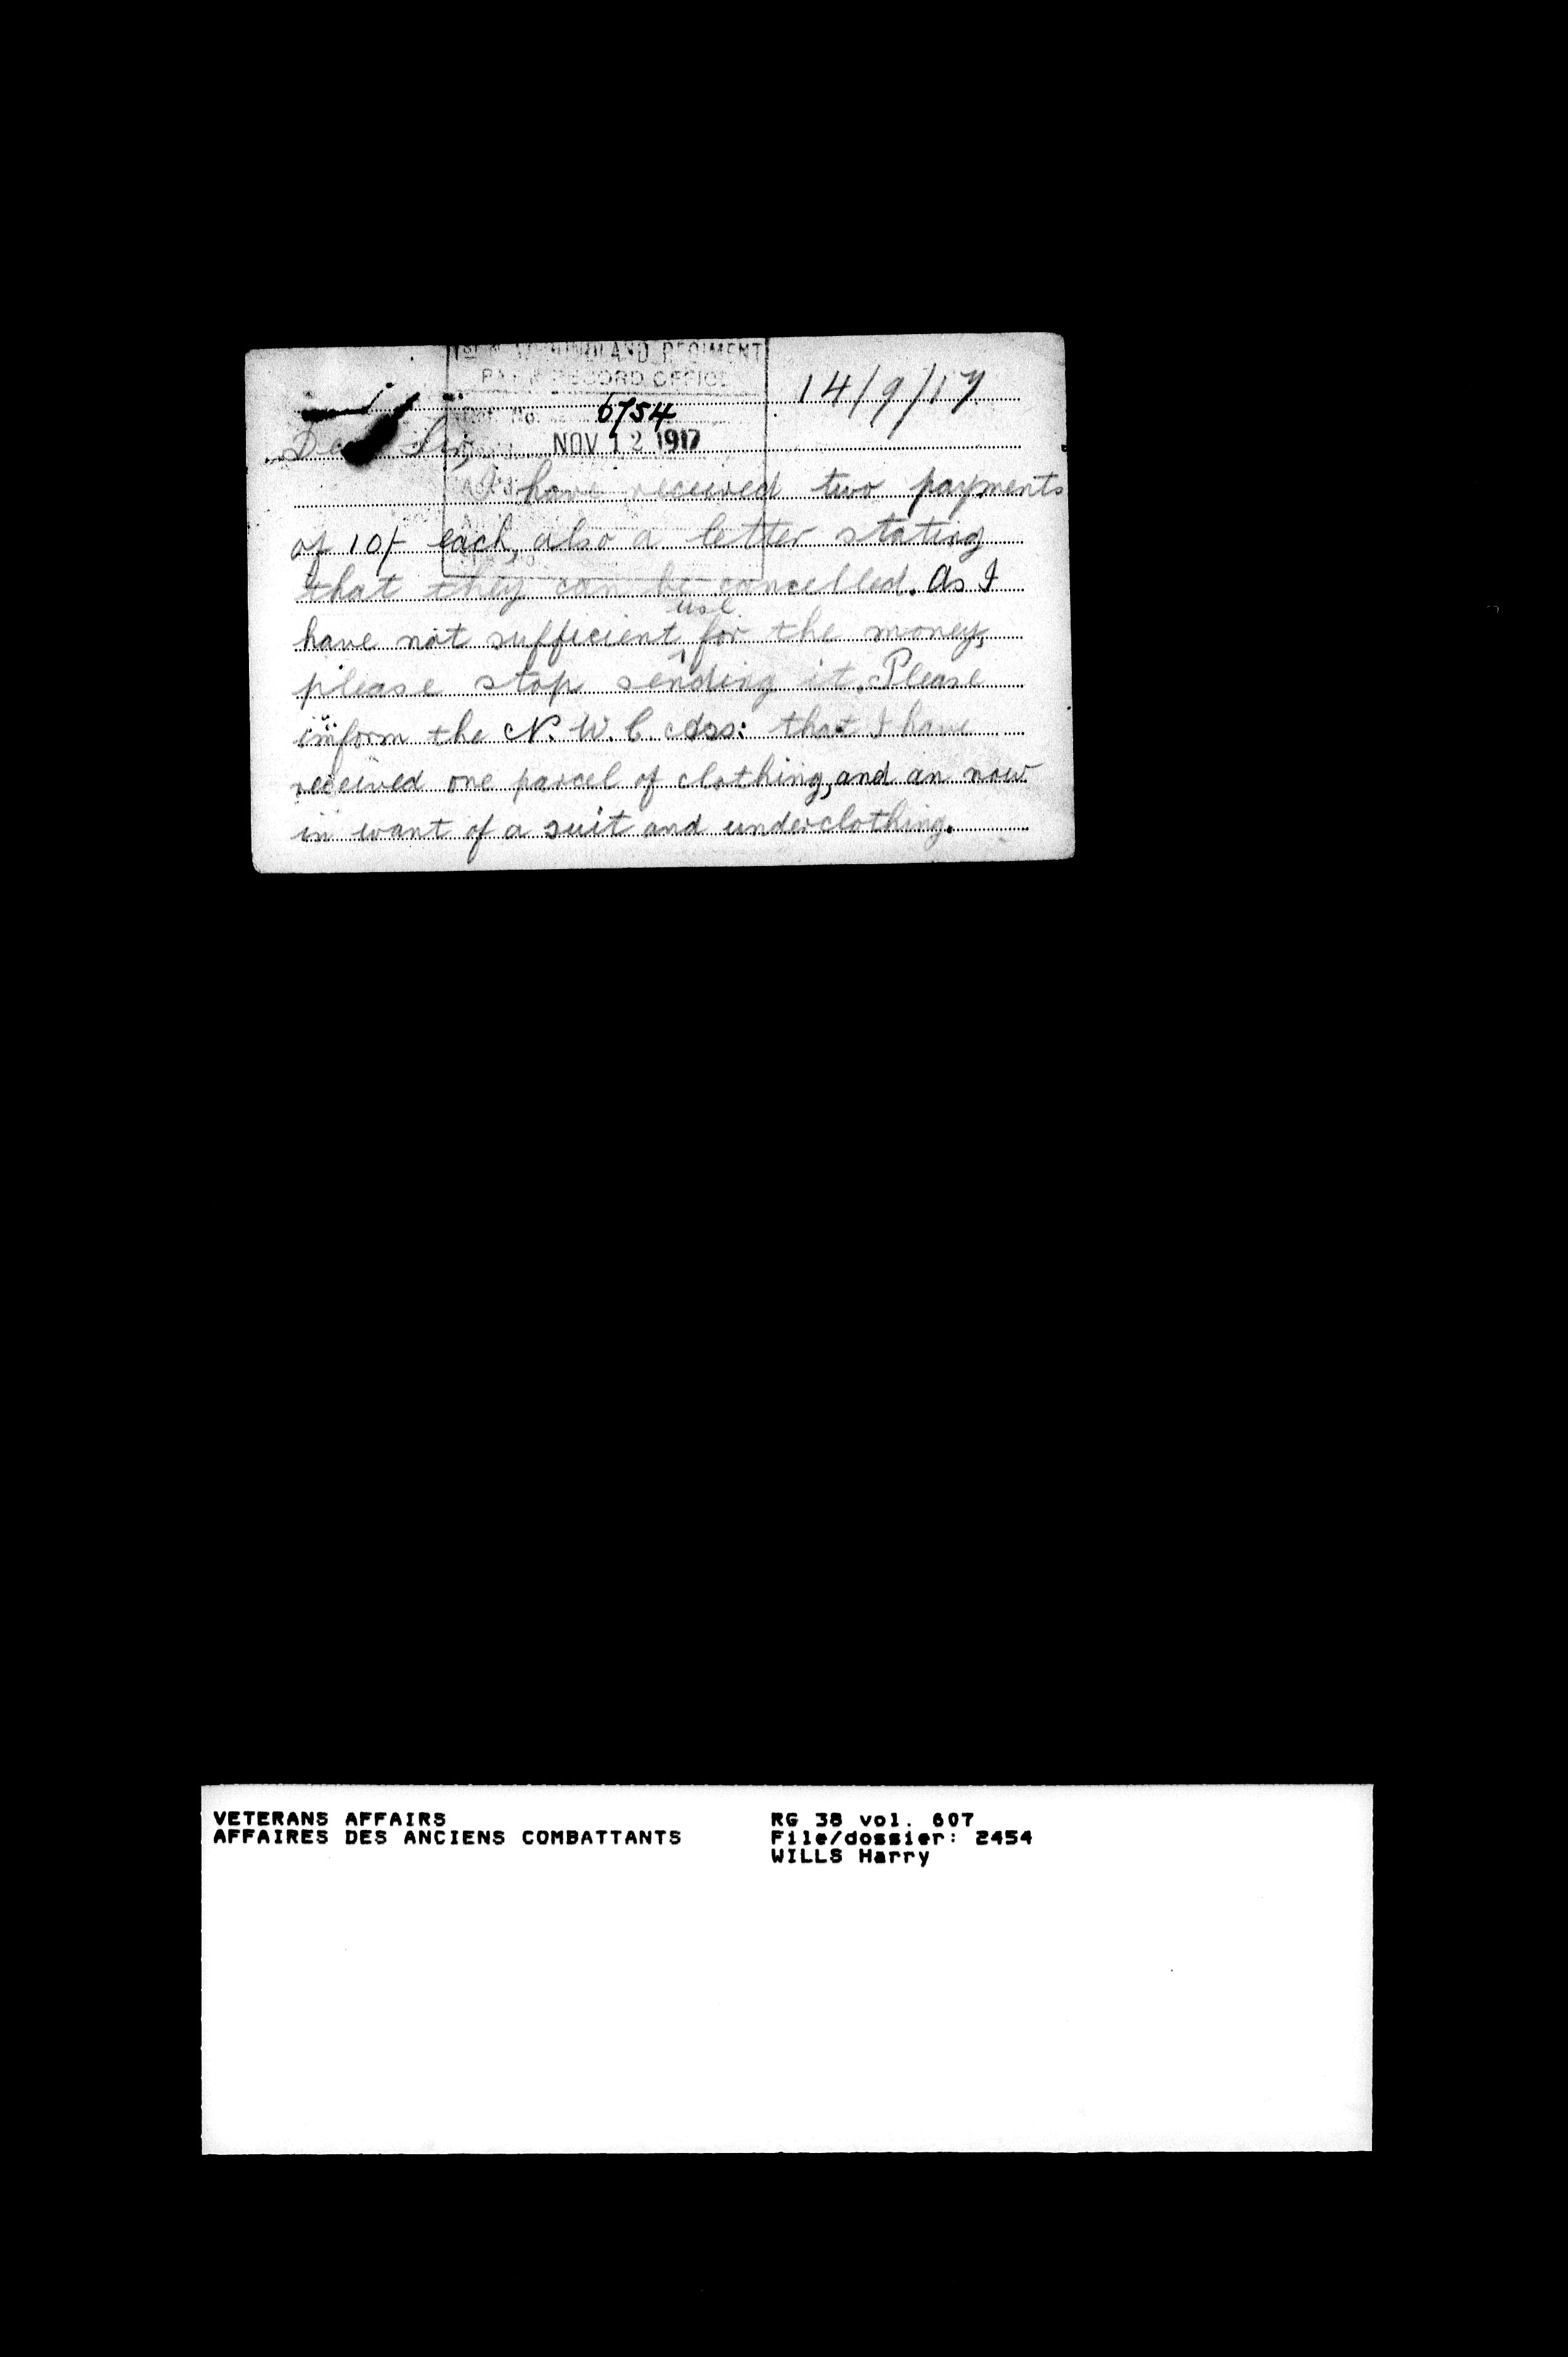 NEWFOUNDLAND REGIMENT
PAY & RECORD OFFICE
14/9/17
No. 6754
NOV 12 1917
Dear Sir,
I have received two payments
of 10/- each, also a letter stating
that they can be cancelled. As I
have not sufficient use for the money,
please stop sending it. Please
inform the N. W. C. Ass: that I have
received one parcel of clothing, and an now
in want of a suit and underclothing.
VETERANS AFFAIRS
AFFAIRES DES ANCIENS COMBATTANTS
RG 38 vol. 607
File/dossier: 2454
WILLS Harry